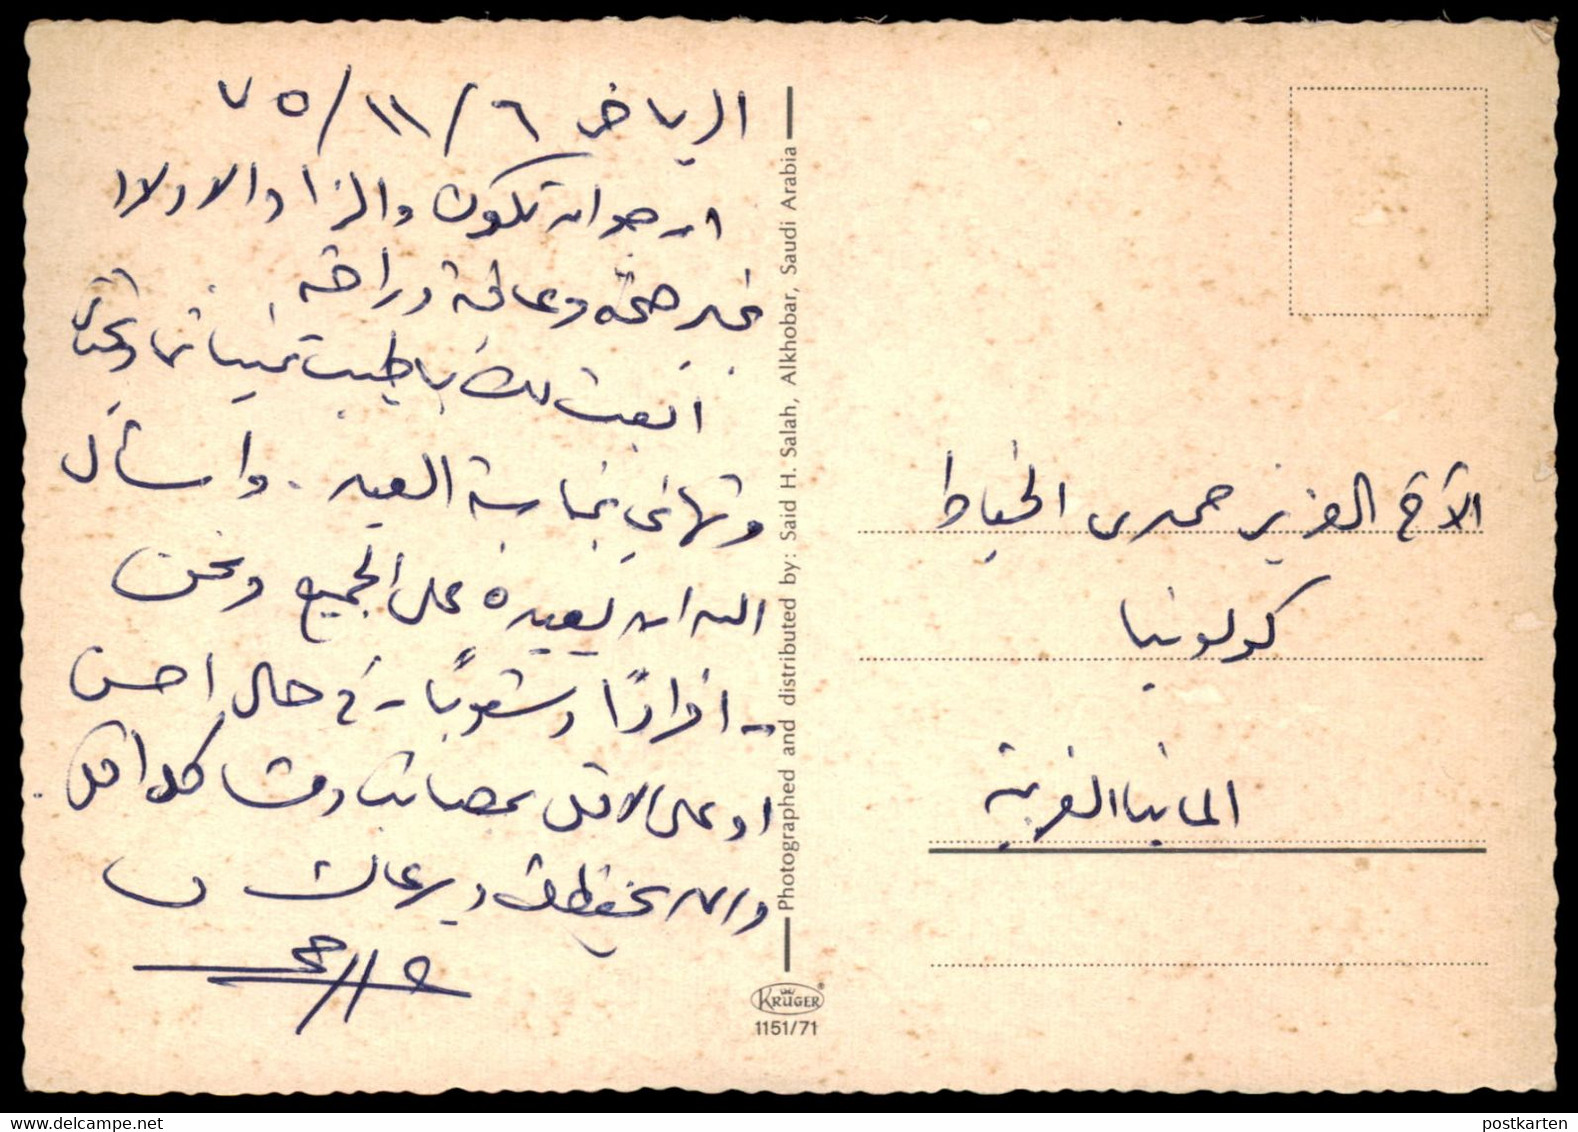 الرياض ٦/١١/٧٥
ارجو ان تكون والزا والاولاد
بخير صحة وعافية وراحة
ابعث لك باطيب تمنياتنا
وتهاني بمناسبة العيد. واسأل
الله ان يعيده على الجميع ونحن
- افرادًا وشعوبًا - في حال احسن
او على الاقل بمصائب ومشاكل اقل.
والله يحفظك ويرعاك
Photographed and distributed by: Said H. Salah, Alkhobar, Saudi Arabia
KRÜGER
1151/71
الأخ العزيز حمدي الخياط
كولونيا
المانيا الغربية
www.delcampe.net
postkarten